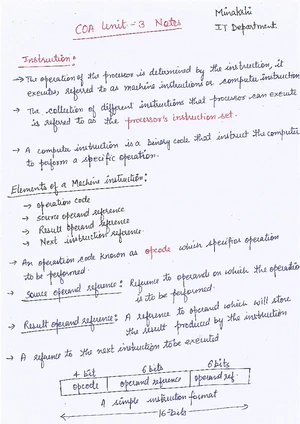 COA Unit - 3 Notes
Minakshi
IT Department
Instruction:
→ The operation of the processor is determined by the instruction, it
executes, referred to as machine instructions or computer instruction
→ The collection of different instructions that processor can execute
is referred to as the processor's instruction set.
→ A computer instruction is a binary code that instruct the computer
to perform a specific operation.
Elements of a Machine instruction:
→ operation code
→ source operand reference
→ Result operand reference
→ Next instruction reference.
→ An operation code known as opcode which specifies operation
to be performed.
→ Source operand reference: Reference to operands on which the operation
is to be performed.
→ Result operand reference: A reference to operand which will store
the result produced by the instruction
→ A reference to the next instruction to be executed
4 bit 6 bits 6 bits
opcode operand reference operand ref.
A simple instruction format
16-bits